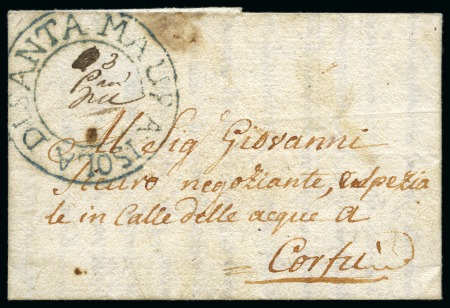 ISOLA DI SANTA MAURA
3
Al Sig Giovanni
negoziante, e spezia
le in Calle delle acque a
Corfù